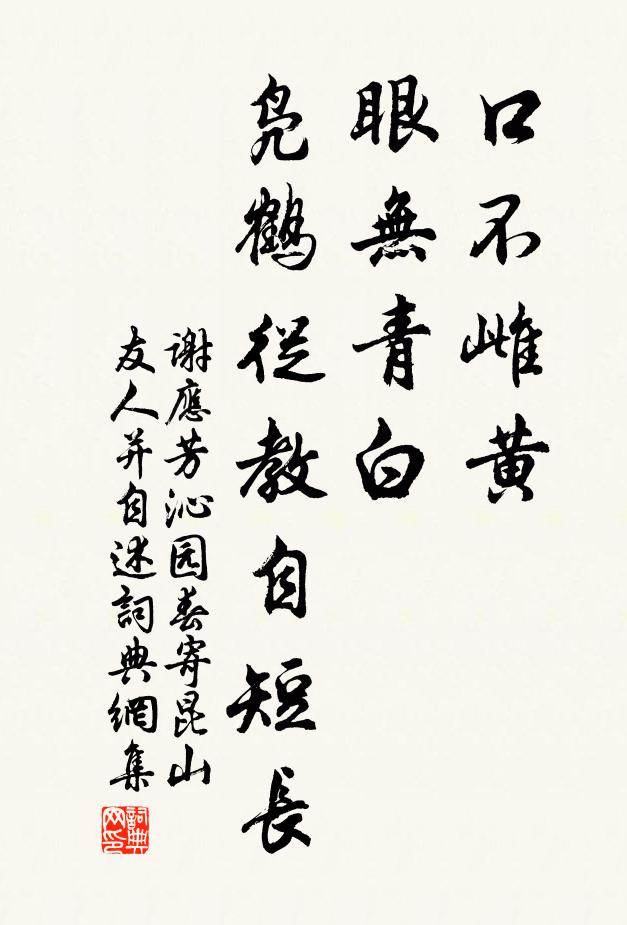 口不雌黄
眼無青白
凫鶴從教自短長
謝應芳沁园春寄昆山
友人并自述詞典網集
詞典网印